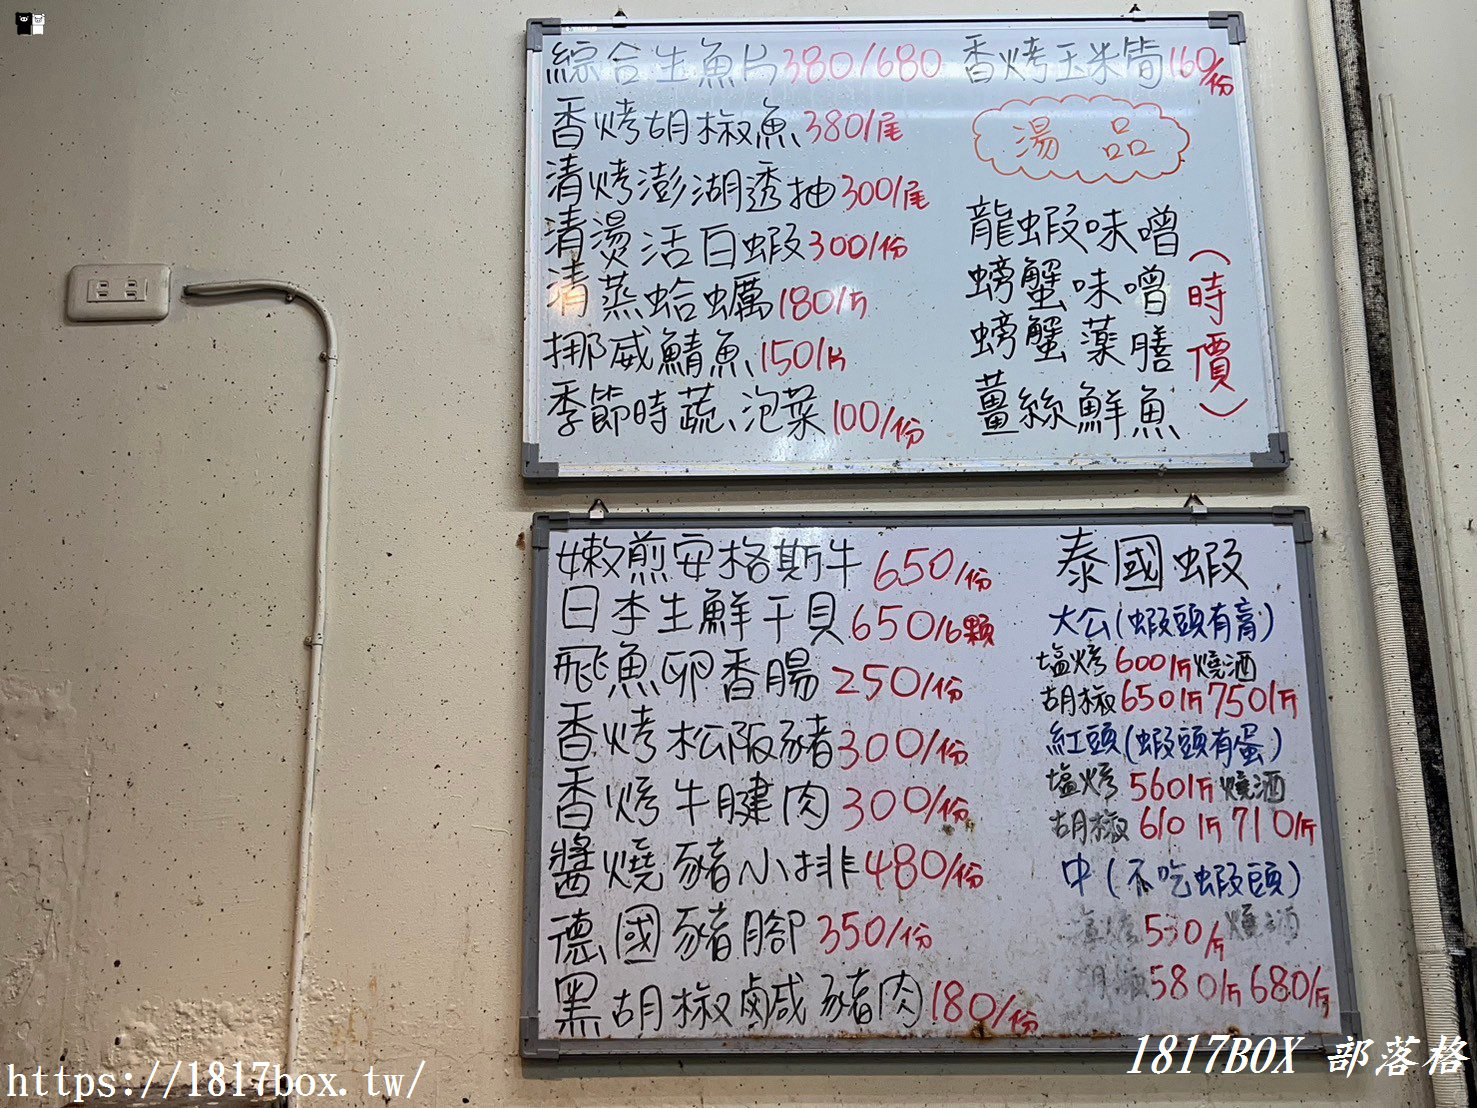 綜合生魚片380/680
香烤胡椒魚380/尾
清烤澎湖透抽300/尾
清燙活白蝦300/份
清蒸蛤蠣180/斤
挪威鯖魚150/片
季節時蔬、泡菜100/份
香烤玉米筍160/份
湯 品
龍蝦味噌
螃蟹味噌
螃蟹藥膳
薑絲鮮魚
(時價)
嫩煎安格斯牛 650/份
日本生鮮干貝 650/6顆
飛魚卵香腸 250/份
香烤松阪豬300/份
香烤牛腱肉 300/份
醬燒豬小排480/份
德國豬腳 350/份
黑胡椒鹹豬肉180/份
泰國蝦
大公(蝦頭有膏)
塩烤 600/斤 燒酒
胡椒 650/斤 750/斤
紅頭(蝦頭有蛋)
塩烤 560/斤 燒酒
胡椒 610/斤 710/斤
中(不吃蝦頭)
530/斤 燒酒
胡椒 580/斤 680/斤
https://1817box.tw/
1817BOX 部落格